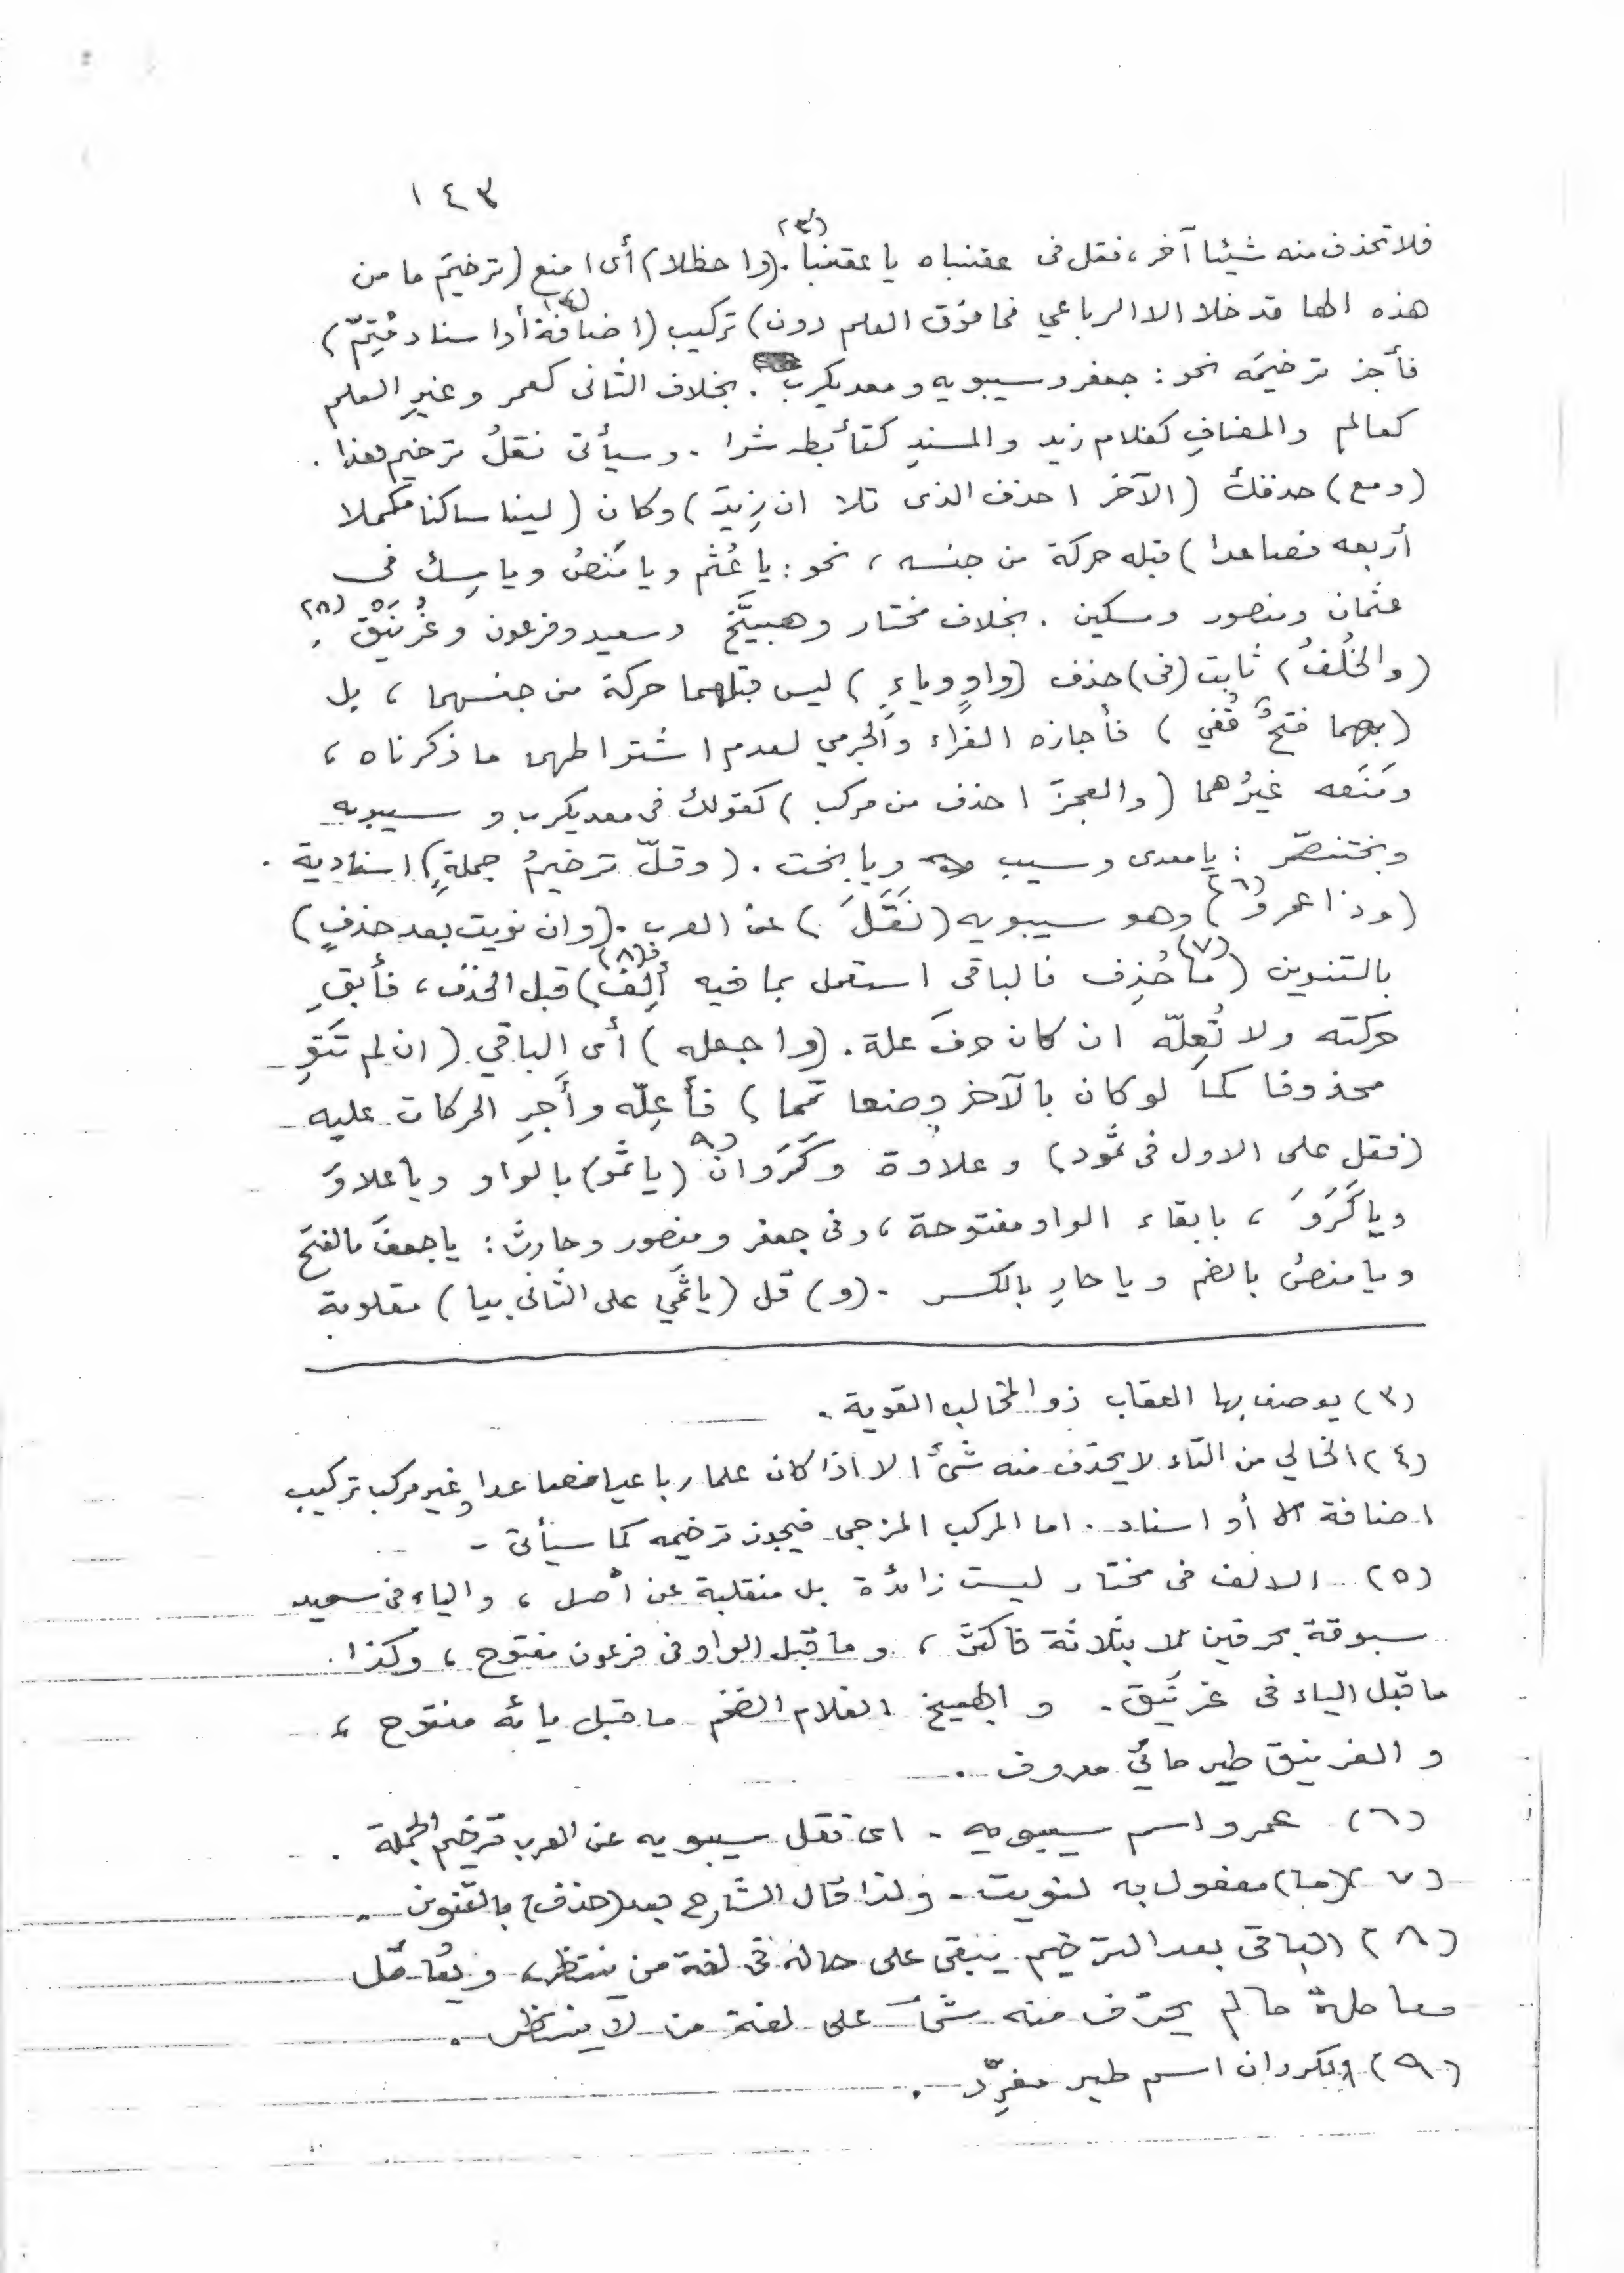 ١٤٣
فلا تحذف منه شيئا آخر، فقل فى عقنباه يا عقنبا(٣). (واحظلا) أى امنع (ترخيمَ ما من
هذه الها قد خلا الا الرباعي فما فوق العلم دون) تركيب (اضافة(٤) أو اسناد مُتِمّ)
فأجز ترخيمَه نحو: جعفر وسيبويه ومعديكرب. بخلاف الثانى كعمر وغيرِ العلم
كعالم والمضافِ كغلام زيد والمسندِ كتأبط شرا. وسيأتى نقلُ ترخيم هذا.
(ومع) حذفك (الآخر احذف الذى تلا ان زِيدَ) وكان (لينا ساكنا مكملا
أربعه فصاعدا) قبله حركة من جنسه، نحو: يا عُثْم ويا مَنْصُ ويا مِسك فى
عثمان ومنصور ومسكين. بخلاف مختار وهبيَّخ وسعيد وفرعون وغُرنَيْق(٥).
(والخُلفُ) ثابت (فى) حذف (واوٍ وياءٍ) ليس قبلهما حركة من جنسهما، بل
(بهما فتحٌ قُفي) فأجازه الفرّاء والجرمي لعدم اشتراطهما ما ذكرناه،
ومَنَعه غيرُهما (والعجزَ احذف من مركب) كقولك فى معديكرب وسيبويه
وبختنصّر: يا معدى وسيب ويا بخت. (وقلّ ترخيمُ جملةٍ) اسنادية.
(وذا عمروٌ(٦)) وهو سيبويه (نَقَلَ) عن العرب. (وان نويت بعد حذفٍ)
بالتنوين (ما(٧) حُذِف فالباقى استعمل بما فيه أُلِف(٨)) قبل الحذف، فأبقِ
حركته ولا تُعِلّه ان كان حرفَ علة. (واجعله) أى الباقي (ان لم تَنوِ
محذوفا كما لو كان بالآخر وضعا تمما) فأعِلّه وأَجرِ الحركات عليه
(فقل على الاول فى ثمود) وعلاوة وكَرَوان(٩) (يا ثَمُو) بالواو ويا علاوَ
ويا كَرَوَ، بابقاء الواو مفتوحة، وفى جعفر ومنصور وحارث: يا جعفَ بالفتح
ويا منصُ بالضم ويا حارِ بالكسر. (و) قل (يا ثَمِي على الثانى بيا) مقلوبة
(٣) يوصف بها العقاب ذو المخالب القوية.
(٤) الخالي من التاء لا يحذف منه شئ الا اذا كان علما رباعيا فصاعدا وغير مركب تركيب
اضافة أو اسناد. اما المركب المزجى فيجوز ترخيمه كما سيأتى.
(٥) الالف فى مختار ليست زائدة بل منقلبة عن أصل، والياء فى سعيد
سبوقة بحرفين لا بثلاثة فاكثر، وما قبل الواو فى فرعون مفتوح، وكذا
ما قبل الياء فى غرنَيق. والهبيخ الغلام الضخم ما قبل يائه مفتوح،
والغرنيق طير مائيّ معروف.
(٦) عمرو اسم سيبويه. اى نقل سيبويه عن العرب ترخيم الجملة.
(٧) (ما) مفعول به لنويت. ولذا قال الشارح بعد (حذف) بالتنوين.
(٨) الباقى بعد الترخيم يبقى على حاله فى لغة من ينتظر، ويُعامَل
معاملة ما لم يحذف منه شئ على لغة من لا ينتظر.
(٩) الكروان اسم طير مغرّد.